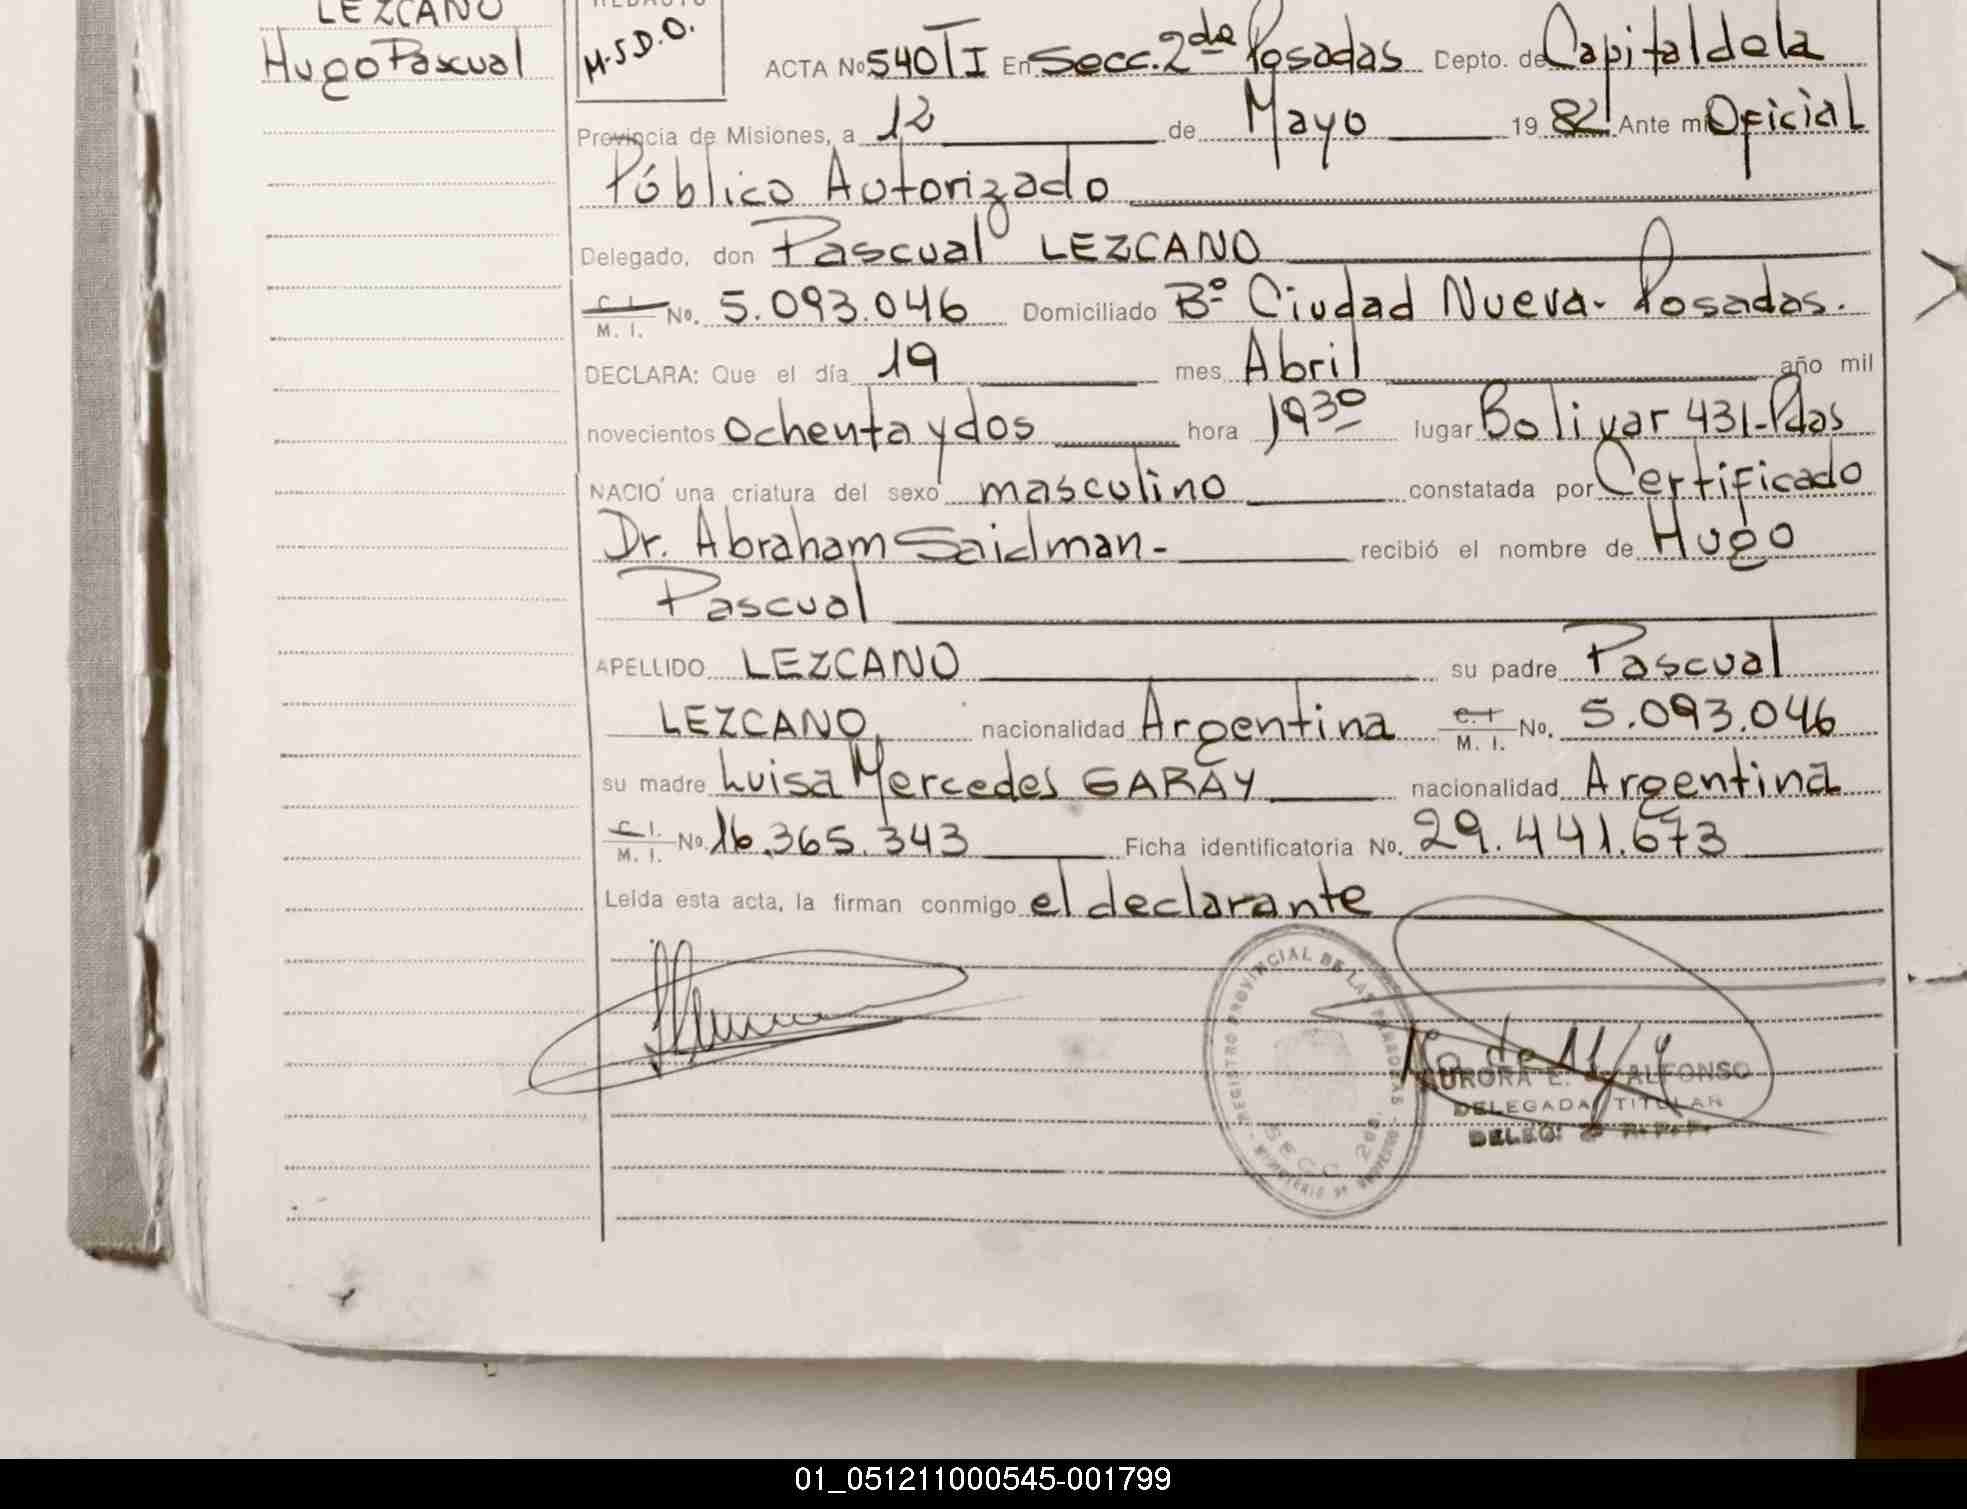 LEZCANO
Hugo Pascual
REDACTO
M.S.D.O.
ACTA No 540 TI En Secc. 2da Posadas Depto. de Capital de la
Provincia de Misiones, a 12 de Mayo 1982 Ante mi Oficial
Público Autorizado
Delegado, don Pascual LEZCANO
C. I. / M. I. No. 5.093.046 Domiciliado Bº Ciudad Nueva - Posadas.
DECLARA: Que el día 19 mes Abril año mil
novecientos ochenta y dos hora 1930 lugar Bolivar 431-Pdas
NACIO una criatura del sexo masculino constatada por Certificado
Dr. Abraham Saidman - recibió el nombre de Hugo
Pascual
APELLIDO LEZCANO su padre Pascual
LEZCANO nacionalidad Argentina C. I. / M. I. No. 5.093.046
su madre Luisa Mercedes GARAY nacionalidad Argentina
C. I. / M. I. No. 16.365.343 Ficha identificatoria No. 29.441.673
Leida esta acta, la firman conmigo el declarante
REGISTRO PROVINCIAL DE LAS PERSONAS
SECC. 2da.
AURORA E. ALFONSO
DELEGADA TITULAR
DELEG. 2 R.P.P.
01_051211000545-001799